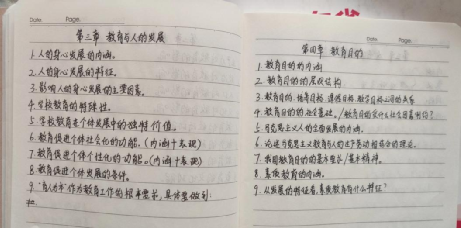 Date. Page.
第三章 教育与人的发展
1. 人的身心发展的内涵。
2. 人的身心发展的特征。
3. 影响人的身心发展的主要因素。
4. 学校教育的特殊性。
5. 学校教育在个体发展中的独特价值。
6. 教育促进个体社会化的功能。(内涵+表现)
7. 教育促进个体个性化的功能。(内涵+表现)
8. 教育促进个体发展的条件。
9. "育人为本"作为教育工作的根本要求,具体要做到:
Date. Page.
第四章 教育目的
1. 教育目的的内涵
2. 教育目的的层次结构
3. 教育目的、培养目标、课程目标、教学目标之间的关系
4. 教育目的的社会基础。/教育目的受什么社会因素制约?
5. 马克思主义人的全面发展的内涵。
6. 论述马克思主义教育与人的生产劳动相结合的理论。
7. 我国教育目的的基本要求/基本精神。
8. 素质教育的内涵。
9. 从发展的特征看,素质教育有什么特征?